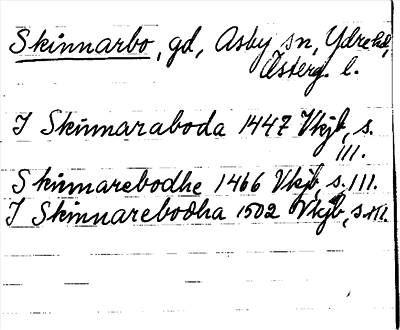 Skinnarbo, gd, Asby sn, Ydre hd,
Österg. l.
I Skinnaraboda 1447 Vkjb, s.
111.
Skinnarebodhe 1466 Vkjb, s. 111.
I Skinnarebodha 1502 Vkjb, s. 111.